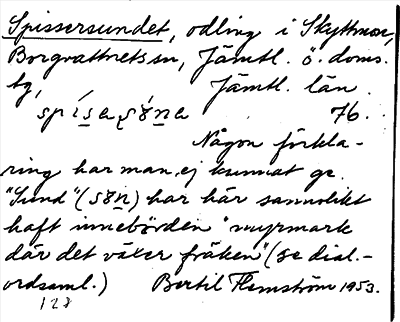 Spissersundet, odling i Skyttmon,
Borgvattnets sn, Jämtl. ö. doms.
tg, Jämtl. län.
76.
Någon förkla-
ring har man ej kunnat ge.
"Sund" (søn) har här sannolikt
haft innebörden "myrmark
där det växer fräken" (se dial.-
ordsaml.) Bertil Flemström 1953.
128